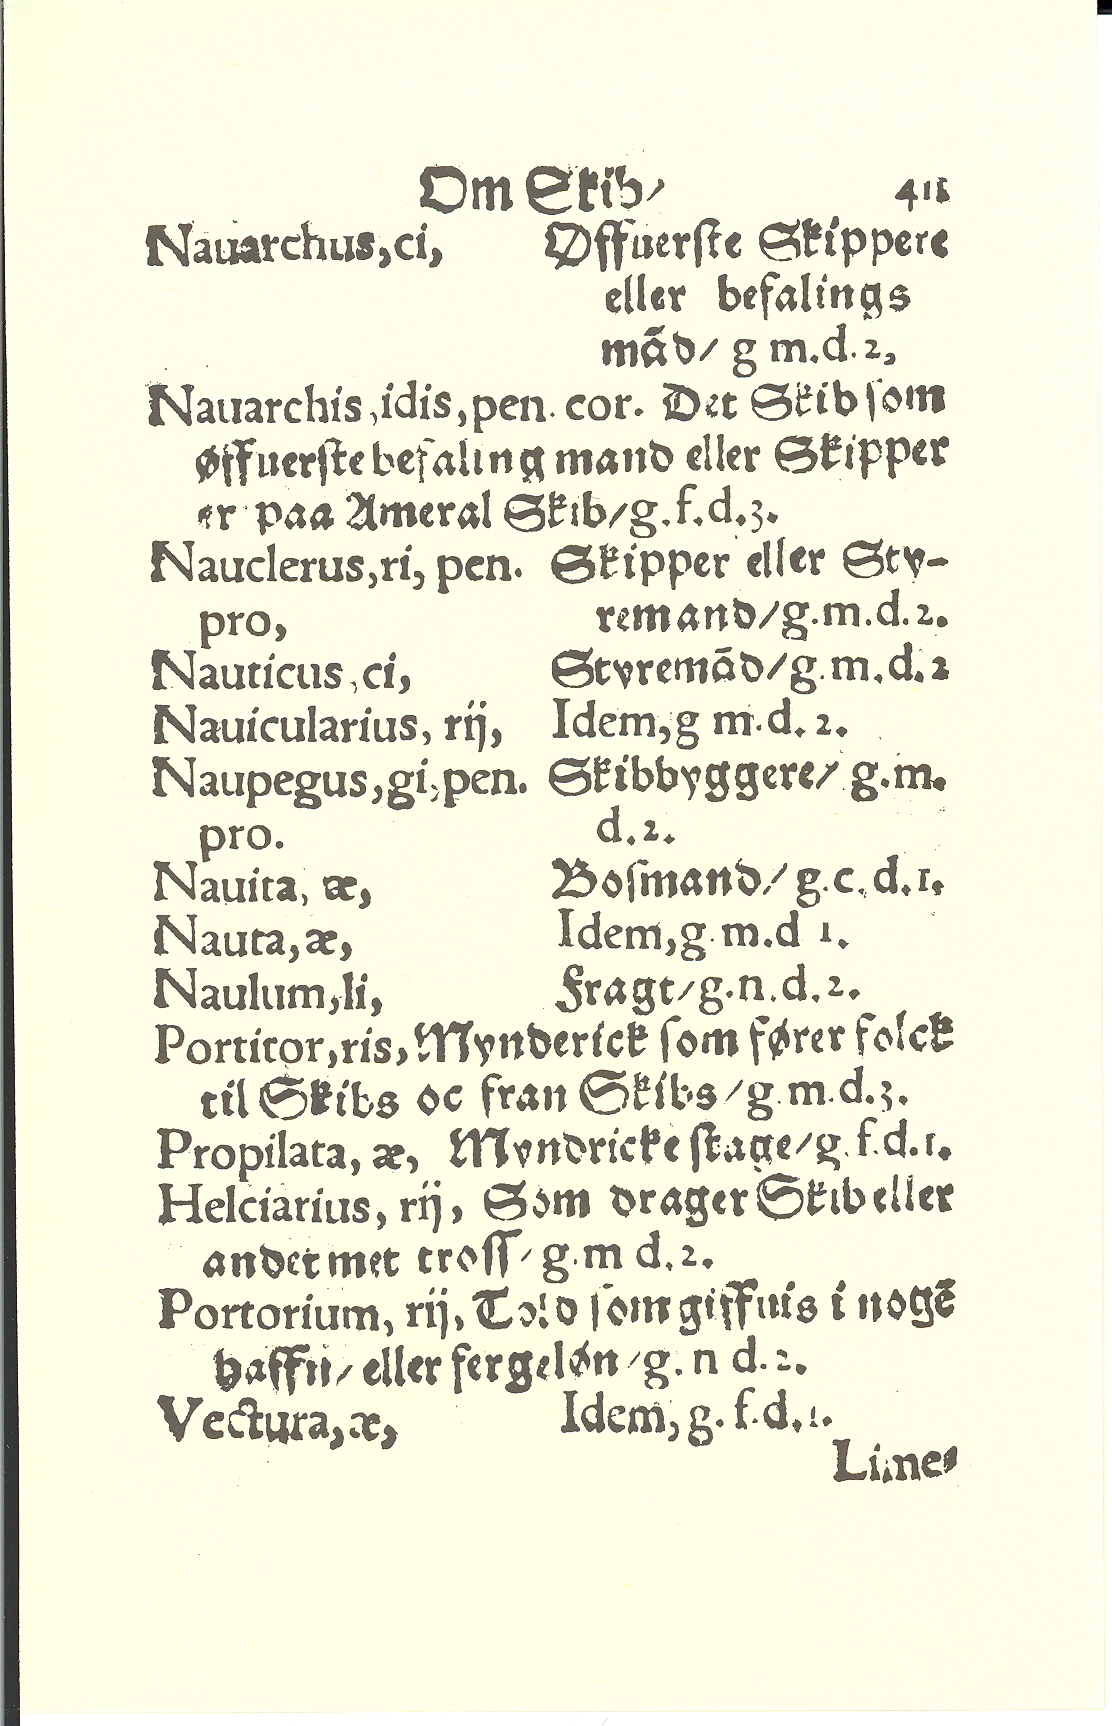 Om Skib/ 411
Nauarchus, ci, Øffuerste Skippere
eller befalings
mād/ g m.d.2,
Nauarchis, idis, pen. cor. Det Skib som
øffuerste befaling mand eller Skipper
er paa Ameral Skib/g.f.d.3.
Nauclerus, ri, pen. Skipper eller Sty-
pro, remand/g.m.d.2.
Nauticus, ci, Styremād/g.m.d.2
Nauicularius, rij, Idem, g m.d.2.
Naupegus, gi, pen. Skibbyggere/ g.m.
pro. d.2.
Nauita, æ, Bosmand/ g.c.d.1.
Nauta, æ, Idem, g.m.d 1.
Naulum, li, Fragt/g.n.d.2.
Portitor, ris, Mynderick som fører folck
til Skibs oc fran Skibs/g.m.d.3.
Propilata, æ, Myndricke stage/g.f.d.1.
Helciarius, rij, Som drager Skib eller
andet met tross/g.m d.2.
Portorium, rij, Told som giffuis i nogē
haffn/ eller fergeløn/g.n d.2.
Vectura, æ, Idem, g.f.d.1.
Limes